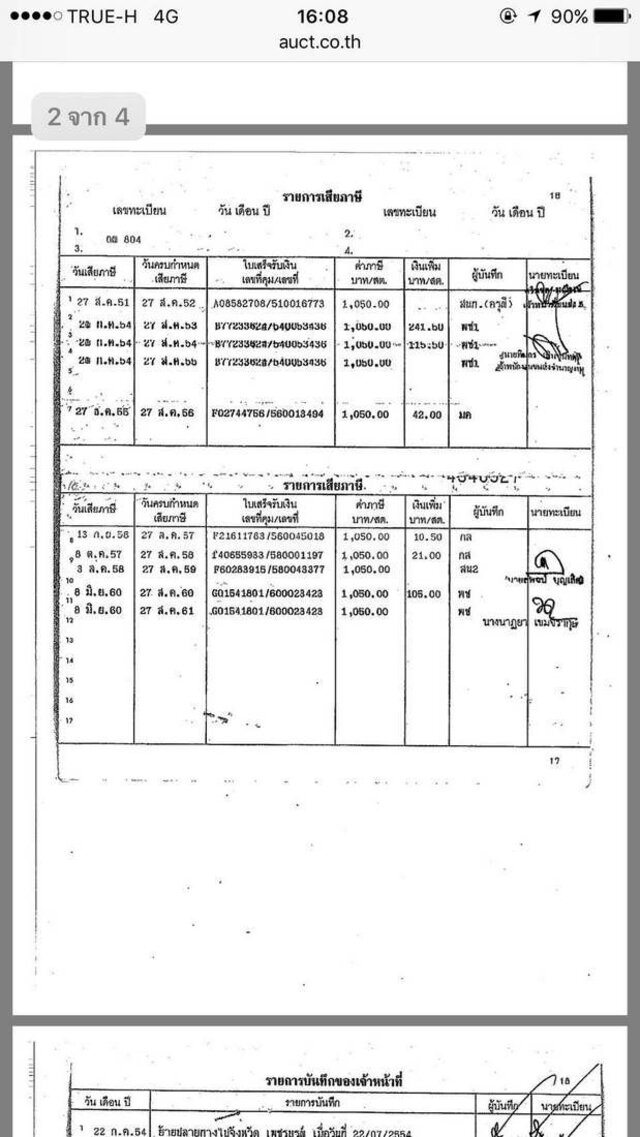 TRUE-H 4G 16:08 90%
auct.co.th
2 จาก 4
รายการเสียภาษี 18
เลขทะเบียน วัน เดือน ปี เลขทะเบียน วัน เดือน ปี
1. 2.
3. 804 4.
วันเสียภาษี วันครบกำหนดเสียภาษี ใบเสร็จรับเงิน เลขที่คุม/เลขที่ ค่าภาษี บาท/สต. เงินเพิ่ม บาท/สต. ผู้บันทึก นายทะเบียน
1 27 ส.ค.51 27 ส.ค.52 A08582708/510016773 1,050.00 สนก.(ครุสี)
2 27 ส.ค.53 1,050.00 241.50 พช1
3 27 ส.ค.54 1,050.00 115.50 พช1
4 27 ส.ค.55 1,050.00 พช1
5
6
7 27 ธ.ค.55 27 ส.ค.56 F02744756/560013494 1,050.00 42.00 มค
รายการเสียภาษี
วันเสียภาษี วันครบกำหนดเสียภาษี ใบเสร็จรับเงิน เลขที่คุม/เลขที่ ค่าภาษี บาท/สต. เงินเพิ่ม บาท/สต. ผู้บันทึก นายทะเบียน
8 13 ก.ย.56 27 ส.ค.57 F21611763/560045018 1,050.00 10.50 กส
9 8 ต.ค.57 27 ส.ค.58 F40655933/580001197 1,050.00 21.00 กส
3 ส.ค.58 27 ส.ค.59 F60283915/580043377 1,050.00 สน2
10
8 มิ.ย.60 27 ส.ค.60 G01541801/600023423 1,050.00 105.00 พช
11
8 มิ.ย.60 27 ส.ค.61 G01541801/600023423 1,050.00 พช
12 นางนาฏยา
13
14
15
16
17
17
รายการบันทึกของเจ้าหน้าที่ 18
วัน เดือน ปี รายการบันทึก ผู้บันทึก นายทะเบียน
1 22 ก.ค.54 ย้ายปลายทางไปจังหวัด เพชรบูรณ์ เมื่อวันที่ 22/07/2554